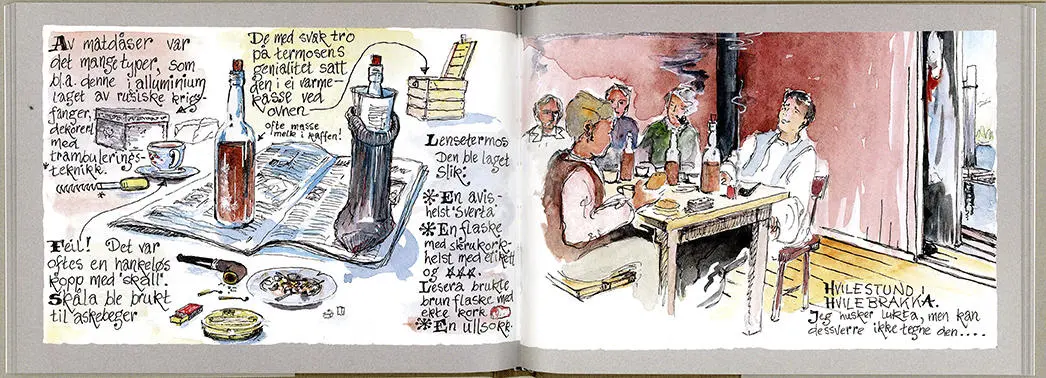 Av matdåser var
det mange typer, som
bl.a. denne i alluminium
laget av rusiske krigs-
fanger,
dekorert
med
trambulerings-
*teknikk.
*
De med svak tro
på termosens
genialitet satt
den i ei varme-
kasse ved
ovnen
ofte masse
melk i kaffen!
Feil! Det var
oftes en hankeløs
kopp med 'skåll'.
Skåla ble brukt
til askebeger
Lensetermos
Den ble laget
slik:
*En avis-
helst 'Sverta'
*En flaske
med skrukork-
helst med etikett
og ***.
Lesera brukte
brun flaske med
ekte 'kork
*En ullsokk.
HVILESTUND I
HVILEBRAKKA.
Jeg husker lukta, men kan
dessverre ikke tegne den....